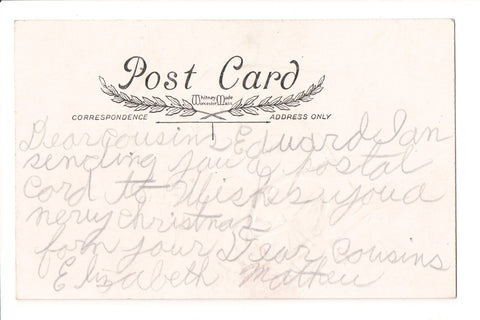 Post Card
Whitney Made
Worcester Mass
CORRESPONDENCE ADDRESS ONLY
Dear cousins Edward I an
sending you a postal
Cord to Wishes you a
nery christmas
form your Dear Cousins
Elizabeth Matheu